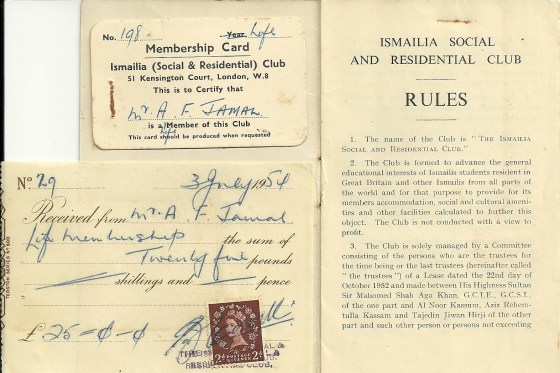 No. 198 Year Life
Membership Card
Ismailia (Social & Residential) Club
51 Kensington Court, London, W.8
This is to Certify that
Mr. A. F. JAMAL
is a Life Member of this Club
This card should be produced when requested
No 29 3 July 1954
Received from Mr. A. F. Jamal
Life Membership the sum of
Twenty five pounds
shillings and pence
£25-0-0
POSTAGE REVENUE
2D 2D
RESIDENTIAL CLUB.
ISMAILIA SOCIAL
AND RESIDENTIAL CLUB
RULES
1. The name of the Club is "THE ISMAILIA
SOCIAL AND RESIDENTIAL CLUB."
2. The Club is formed to advance the general
educational interests of Ismailis students resident in
Great Britain and other Ismailis from all parts of
the world and for that purpose to provide for its
members accommodation, social and cultural ameni-
ties and other facilities calculated to further this
object. The Club is not conducted with a view to
profit.
3. The Club is solely managed by a Committee
consisting of the persons who are the trustees for
the time being or the last trustees (hereinafter called
" the trustees ") of a Lease dated the 22nd day of
October 1952 and made between His Highness Sultan
Sir Mahomed Shah Aga Khan, G.C.I.E., G.C.S.I.,
of the one part and Al Noor Kassum, Aziz Rehem-
tulla Kassum and Tajedin Jiwan Hirji of the other
part and such other person or persons not exceeding